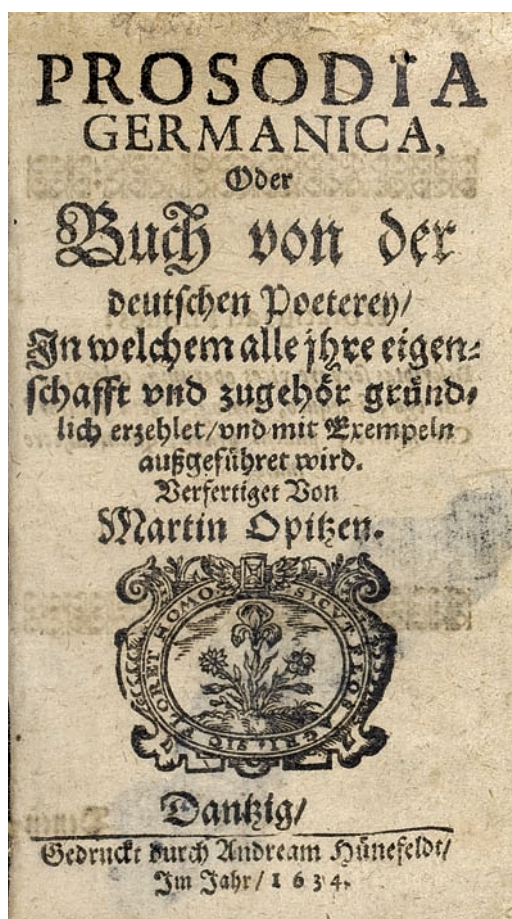 PROSODIA
GERMANICA,
Oder
Buch von der
deutschen Poeterey/
In welchem alle jhre eigen⸗
schafft vnd zugehör gründ⸗
lich erzehlet/vnd mit Exempeln
außgeführet wird.
Verfertiget Von
Martin Opitzen.
HOMO SICVT FLOS AGRI SIC FLORET
Dantzig/
Gedruckt durch Andream Hünefeldt/
Im Jahr/ 1634.